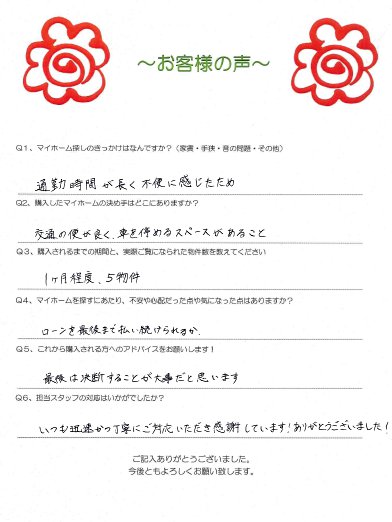 ～お客様の声～
Q1、マイホーム探しのきっかけはなんですか？（家賃・手狭・音の問題・その他）
通勤時間が長く不便に感じたため
Q2、購入したマイホームの決め手はどこにありますか？
交通の便が良く、車を停めるスペースがあること
Q3、購入されるまでの期間と、実際ご覧になられた物件数を教えてください
1ヶ月程度、5物件
Q4、マイホームを探すにあたり、不安や心配だった点や気になった点はありますか？
ローンを最後まで払い続けられるか
Q5、これから購入される方へのアドバイスをお願いします！
最後は決断することが大事だと思います
Q6、担当スタッフの対応はいかがでしたか？
いつも迅速かつ丁寧にご対応いただき感謝しています！ありがとうございました！
ご記入ありがとうございました。
今後ともよろしくお願い致します。